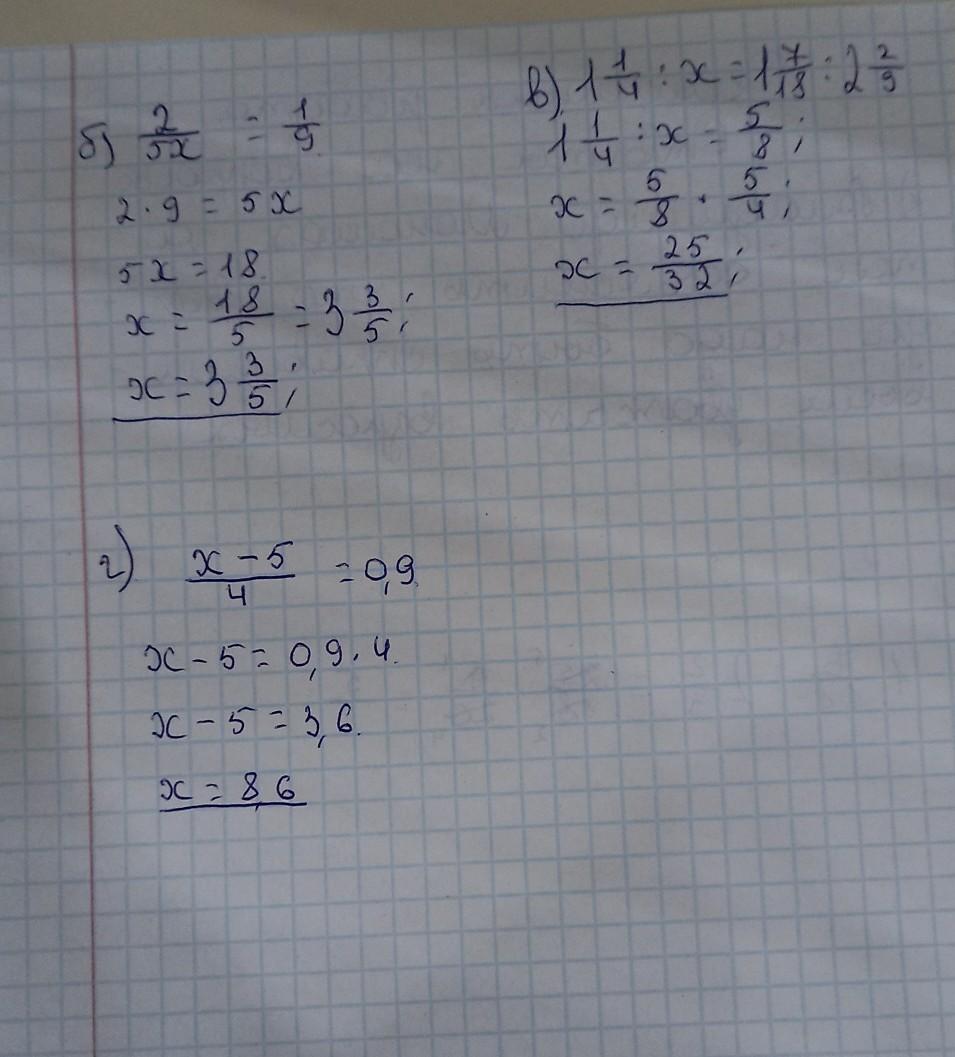 б) 2/5x = 1/9
2 · 9 = 5x
5x = 18.
x = 18/5 = 3 3/5;
x = 3 3/5;
в) 1 1/4 : x = 1 7/18 : 2 2/9
1 1/4 : x = 5/8;
x = 5/8 · 5/4;
x = 25/32;
г) x - 5/4 = 0,9.
x - 5 = 0,9 · 4.
x - 5 = 3,6.
x = 8,6